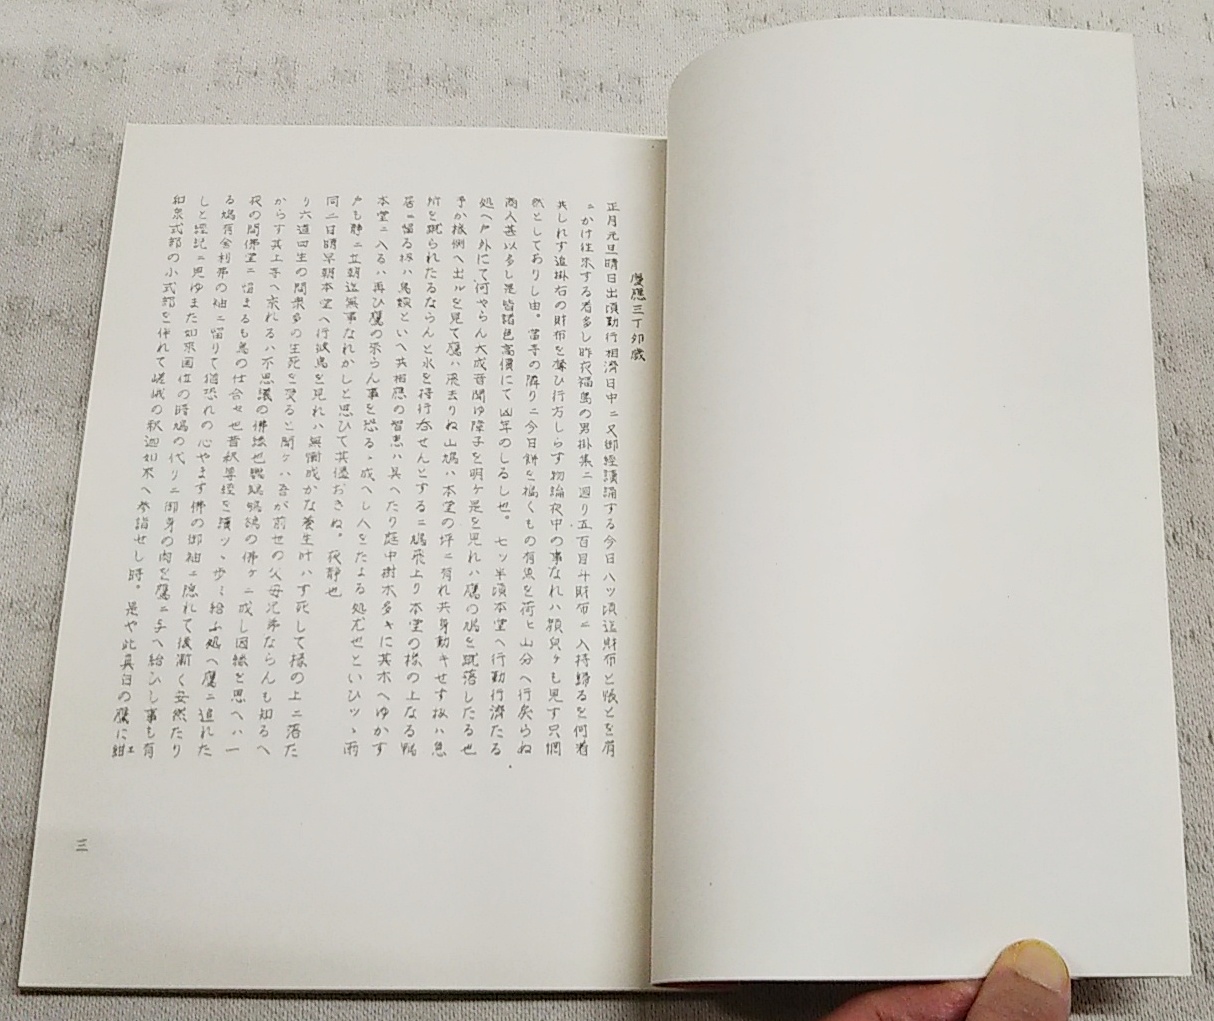 慶應三丁卯歳
正月元旦晴日出頃勤行相濟日中ニ又御經讀誦する今日八ツ頃迄財布と帳とを肩
ニかけ往来する者多し昨夜福島の男掛集ニ廻り五百目斗財布ニ入持歸るを何者
共しれす追掛右の財布を奪ひ行方しらす物論夜中の事なれハ顔臾ケも見す只惘
然としてありし由。當寺の隣りニ今日餅を搗くもの有魚を荷ヒ山分へ行矣らぬ
商人甚以多し是皆諸色高價にて凶年のしるし也。七ツ半頃本堂へ行勤行濟たる
処へ戸外にて何やらん大成音聞ゆ障子を明ケ是を見れハ鷹の鳩を蹴落したる也
予か椽側へ出ルを見て鷹ハ飛去りぬ山鳩ハ本堂の坪ニ有れ共身動キせす扨ハ急
所を蹴られたるならんと水を持行呑せんとするニ鳩飛上り本堂の椽の上なる鴨
居ニ留る扨ハ鳥類といへ共相應の智恵ハ具へたり庭中樹木多キに其木へゆかす
本堂ニ入るハ再ひ鷹の来らん事を恐るゝ成へし人をたよる処尤也といひツヽ雨
戸も静ニ立朝迄無事なれかしと思ひて其儘おきぬ。夜静也
同二日晴早朝本堂へ行彼鳥を見れハ無慚成かな養生叶ハす死して椽の上ニ落た
り六道四生の間衆多の生死を受ると聞ケハ吾か前世の父母兄弟ならんも知るへ
からす其上寺へ来れるハ不思議の佛縁也
夜の間佛堂ニ留まるも鳥の仕合セ也昔釈尊經を讀ツヽ歩ミ給ふ処へ鷹ニ追れた
る鳩有舎利弗の袖ニ留りて猶恐れの心やます佛の御袖ニ隠れて後漸く安然たり
しと經記ニ見ゆまた如来因位の時鳩の代りニ御身の肉を鷹ニ与へ給ひし事も有
和泉式部の小式部を伴れて嵯峨の釈迦如来へ参詣せし時。是や此真白の鷹に紺ヱ
三